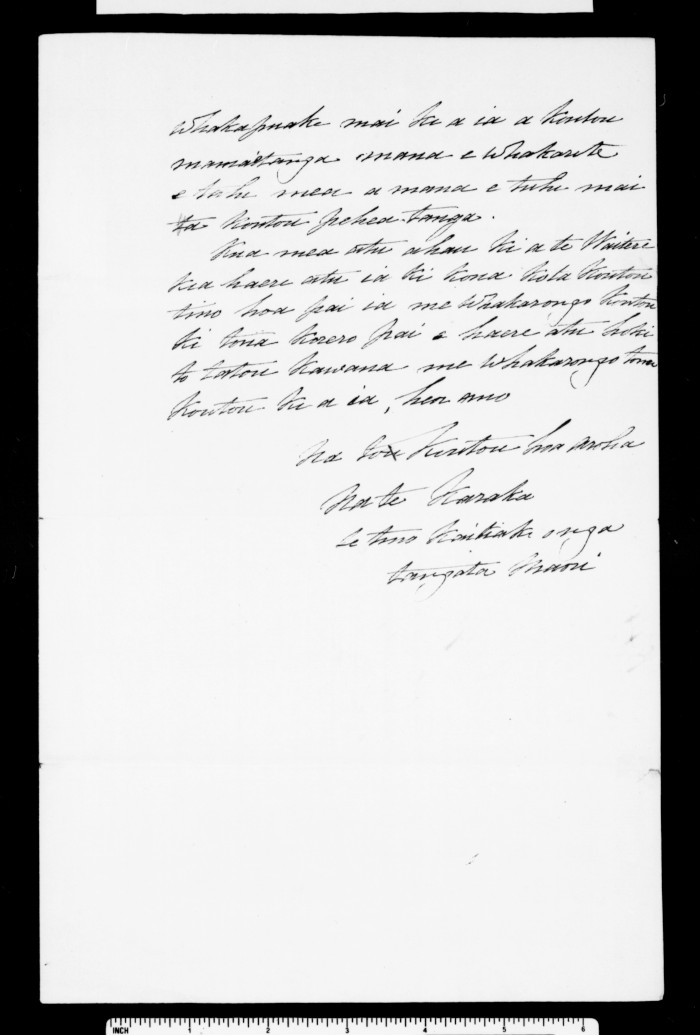 Whakapuaki mai ki a ia a koutou
mamaetanga mana e whakarite
e tahi mea a mana e tuhi mai
ta koutou pehea tanga.
Kua mea atu ahau ki a te Waitere
kia haere atu ia ki kona kota koutou
tino hoa pai ia me whakarongo koutou
ki tona korero pai e haere atu hoki
to tatou Kawana me whakarongo tonu
koutou ki a ia, heoi ano
Na to koutou hoa aroha
Na te Karaka
te tino Kaitiaki o nga
tangata Maori
INCH 1 2 3 4 5 6